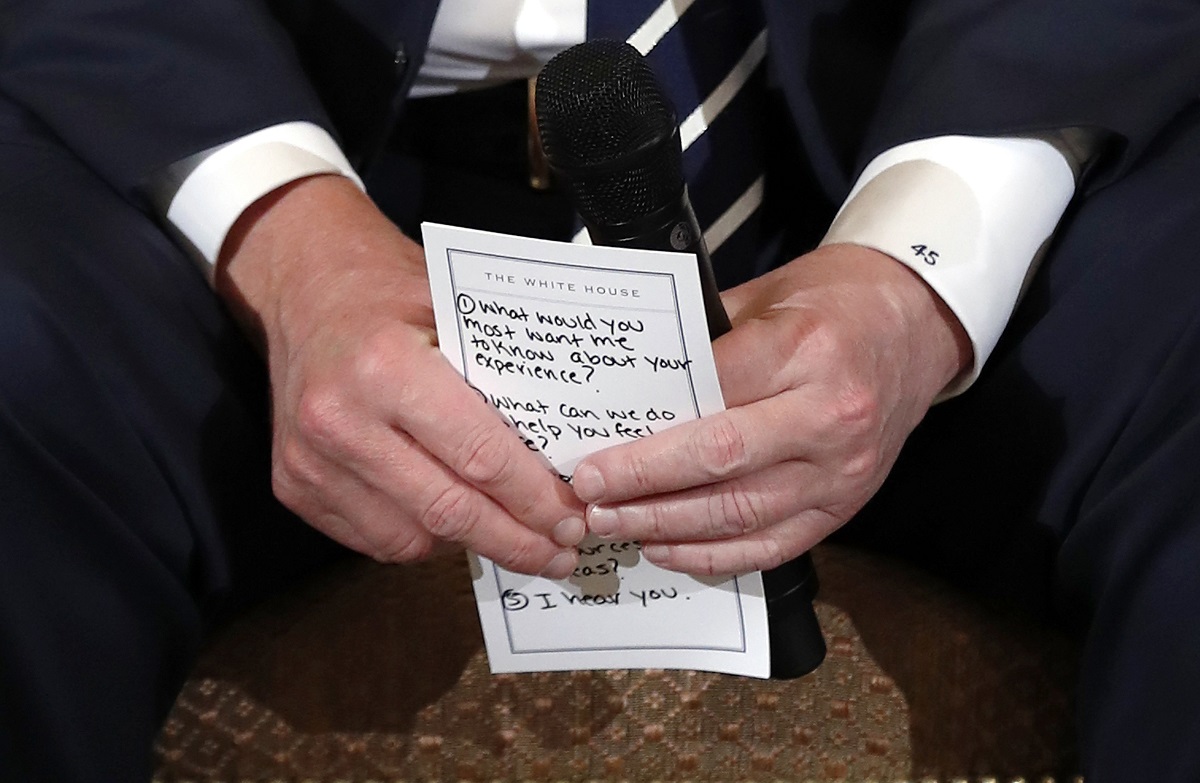 THE WHITE HOUSE
① What would you
most want me
to know about your
experience?
What can we do
help you feel
5 I hear you.
45